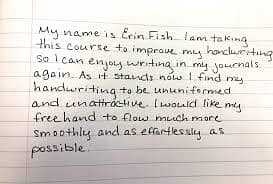 My name is Erin Fish. I am taking
this course to improve my handwriting
so I can enjoy writing in my journals
again. As it stands now I find my
handwriting to be ununiformed
and unattractive. I would like my
free hand to flow much more
smoothly and as effortlessly as
possible.